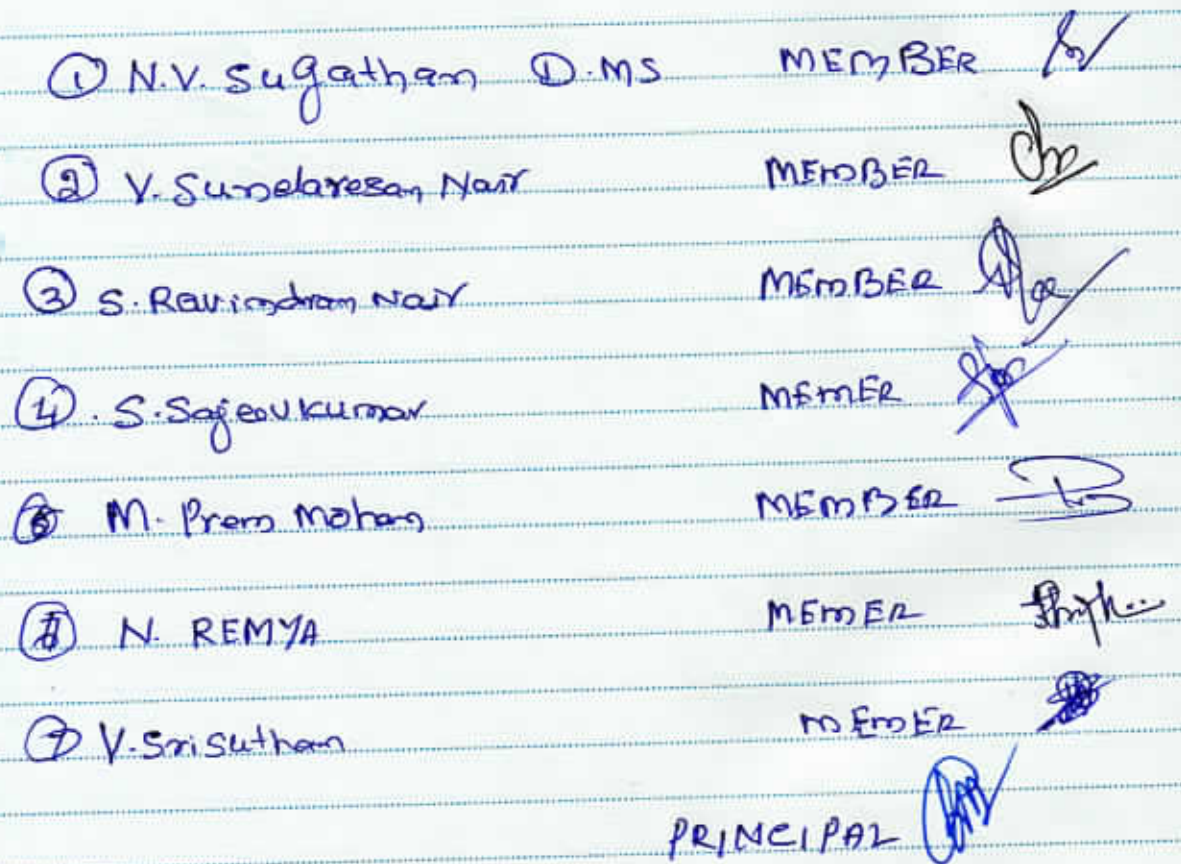 ① N.V. Sugathan D.MS MEMBER
② V. Sundaresan Nair MEMBER
③ S. Ravindran Nair MEMBER
④ . S. Sajeevkumar MEMER
M. Prem Mohan MEMBER
N. REMYA MEMER
⑦ V. Srisuthan MEMER
PRINCIPAL